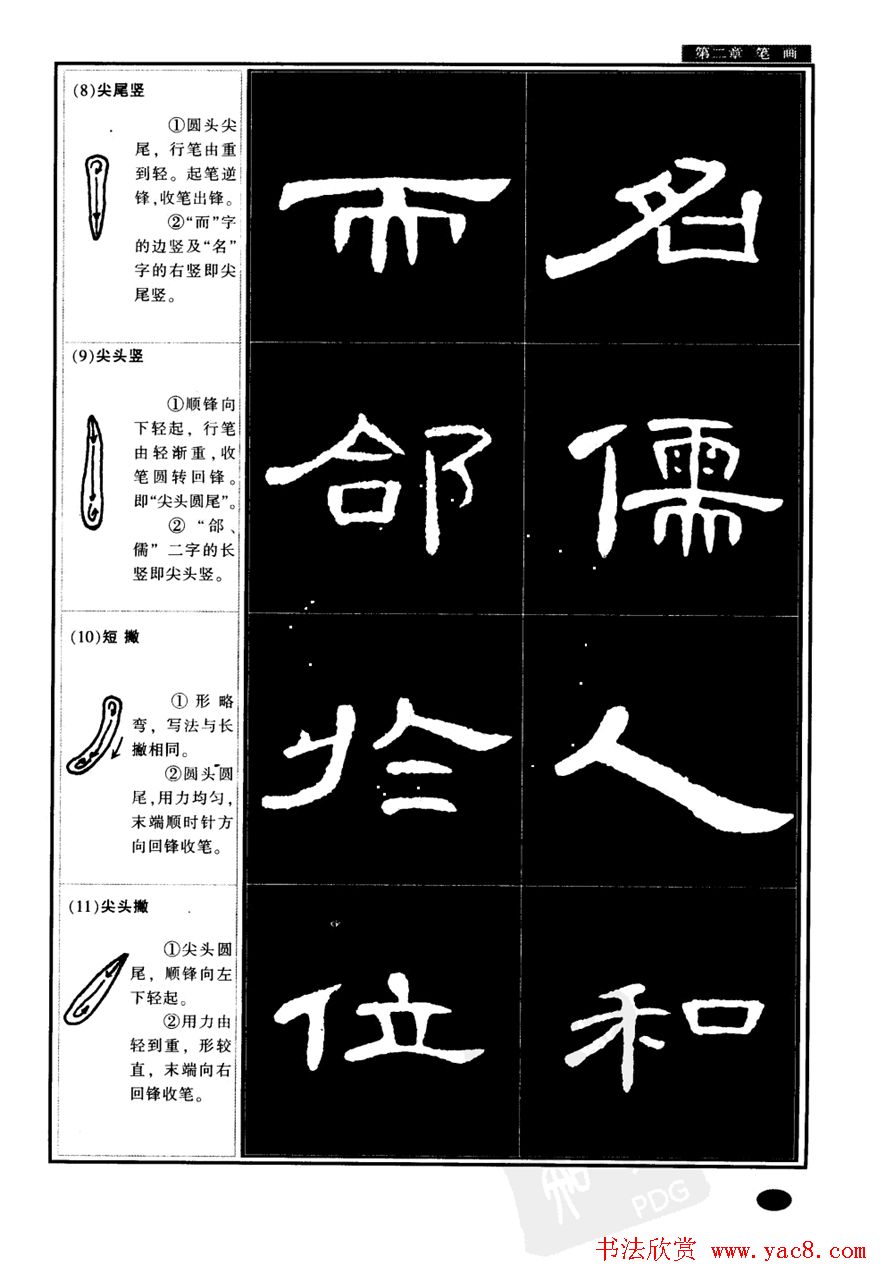 第二章 笔 画
(8)尖尾竖
①圆头尖
尾，行笔由重
到轻。起笔逆
锋,收笔出锋。
②“而”字
的边竖及“名”
字的右竖即尖
尾竖。
而 名
(9)尖头竖
①顺锋向
下轻起，行笔
由轻渐重,收
笔圆转回锋。
即“尖头圆尾”。
② “郃、
儒”二字的长
竖即尖头竖。
郃 儒
(10)短 撇
① 形 略
弯，写法与长
撇相同。
②圆头圆
尾,用力均匀,
末端顺时针方
向回锋收笔。
於 人
(11)尖头撇
①尖头圆
尾，顺锋向左
下轻起。
②用力由
轻到重，形较
直，末端向右
回锋收笔。
位 和
PDG
书法欣赏 www.yac8.com